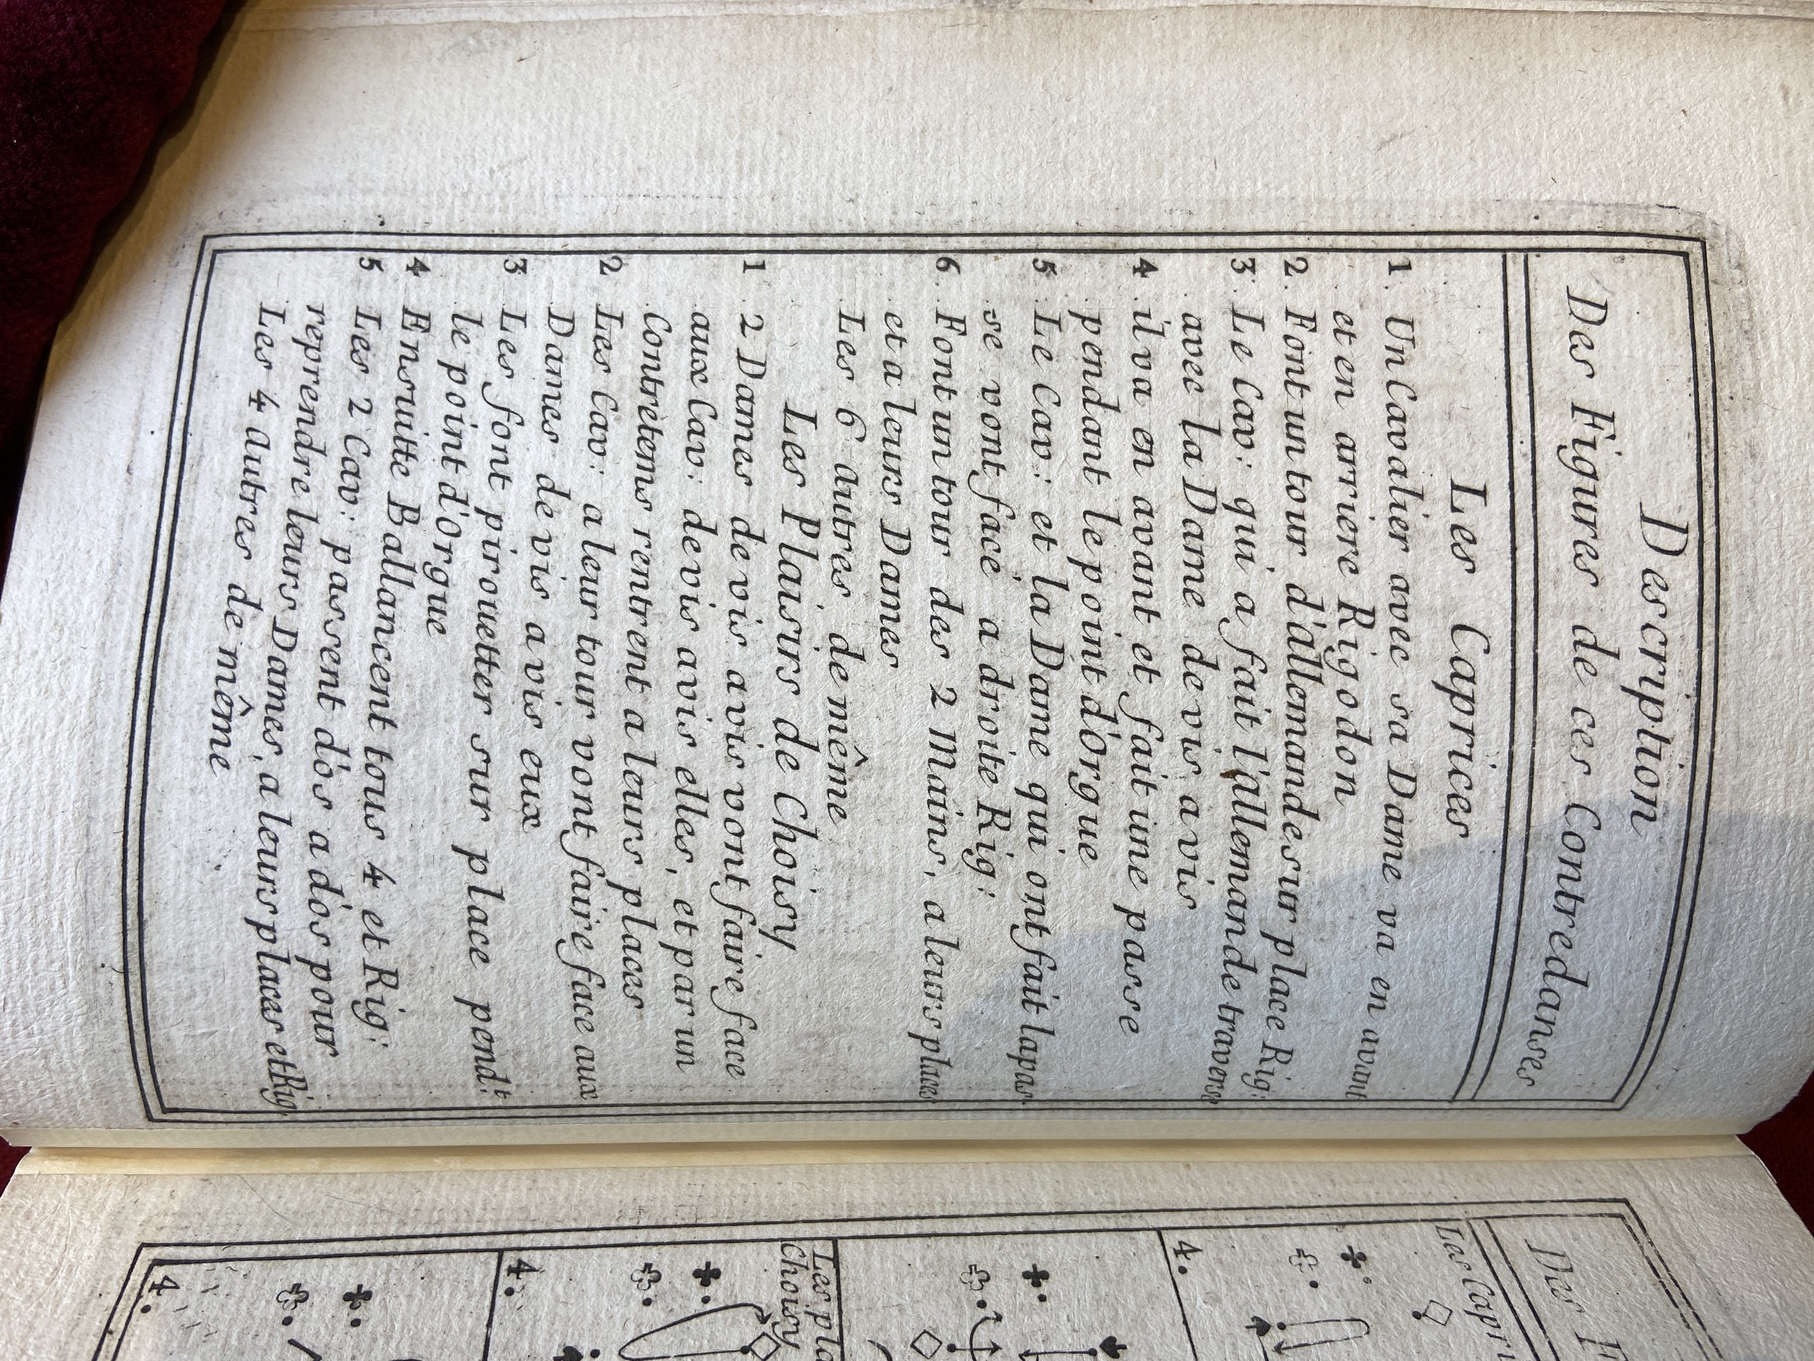 Description
Des Figures de ces Contredanses
Les Caprices
1. Un Cavalier avec sa Dame va en avant
et en arriere Rigodon
2. Font un tour d'allemande sur place Rig:
3. Le Cav: qui a fait l'allemande traverse
avec la Dame de vis a vis
4. il va en avant et fait une passe
pendant le point d'Orgue
5. Le Cav: et la Dame qui ont fait la pas
se vont face a droite Rig:
6. Font un tour des 2 mains, a leurs places
et a leurs Dames
Les 6 autres de même
Les Plaisirs de Choisy
1. 2 Dames de vis avis vont faire face
aux Cav: de vis avis elles, et par un
Contretems rentrent a leurs places
2 Les Cav: a leur tour vont faire face aux
Dames de vis a vis eux
3. Les font pirouetter sur place pend.t
le point d'Orgue
4 Ensuitte Ballancent tous 4 et Rig:
5 Les 2 Cav: passent dos a dos pour
reprendre leurs Dames, a leurs places et Rig
Les 4 autres de même
Les Capri
4.
Les pla
Choisy
4.
4.